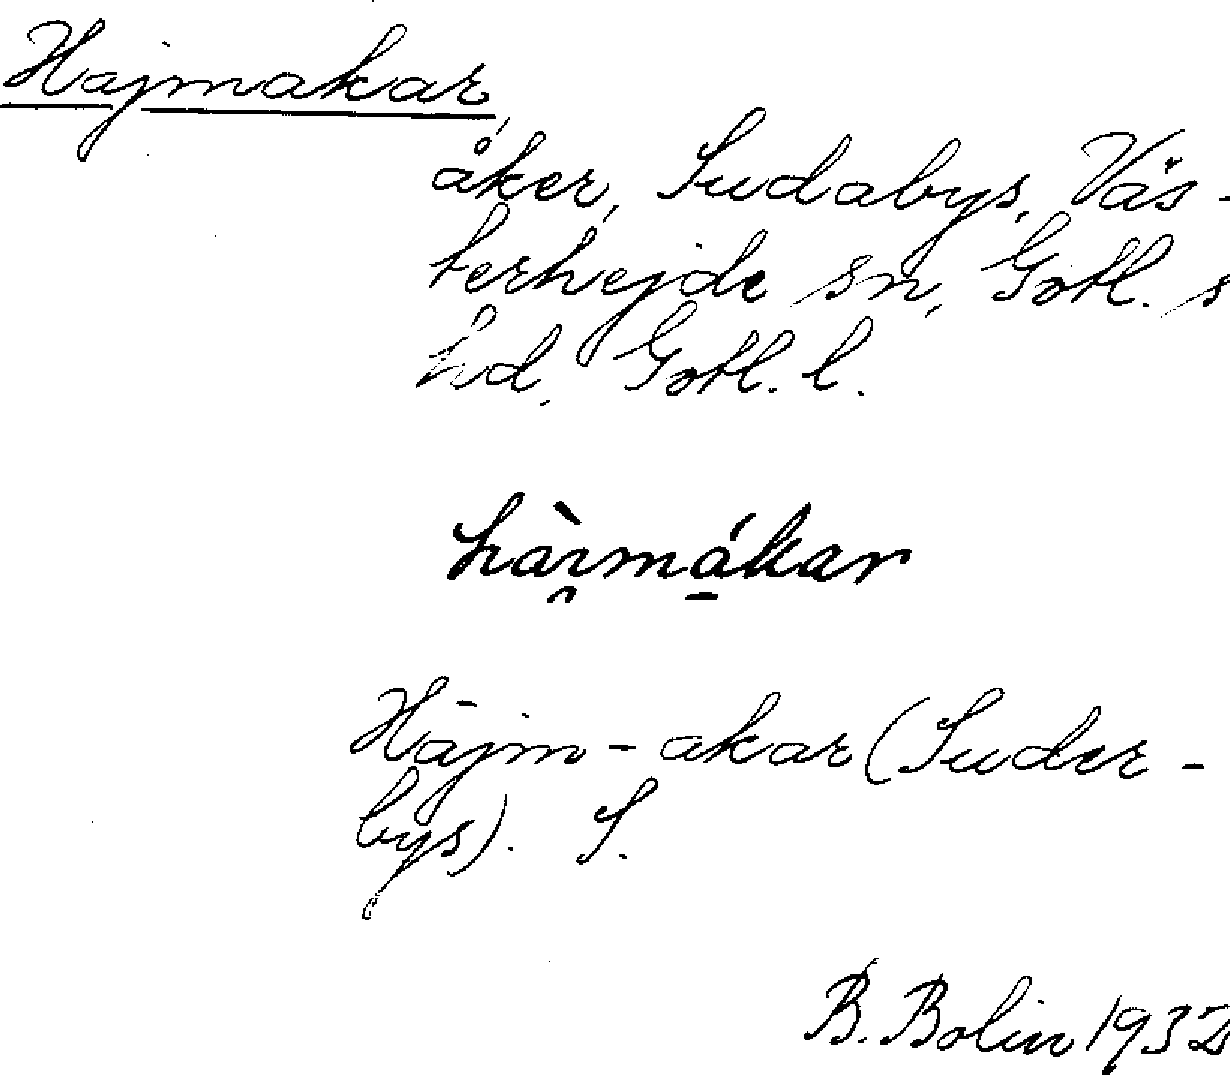 Hajmakar,
åker, Sudabys, Väs-
terhejde sn, Gotl. s
hd, Gotl. l.
hàimákar
Hājm-akar (Suder-
bys). S.
B. Bolin 1932